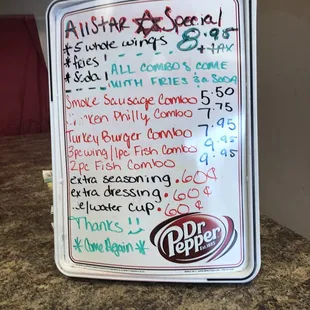 Allstar Special
* 5 whole wings 8.95
* fries + tax
* Soda
ALL COMBO'S COME
WITH FRIES & a SODA
Smoke Sausage Combo 5.50
Ken Philly Combo 7.75
Turkey Burger Combo 7.95
3pc wing/1pc Fish Combo 9.95
2pc Fish Combo 9.95
extra seasoning . 60¢
extra dressing . 60¢
/water cup . 60¢
Thanks
* Come Again *
Dr Pepper